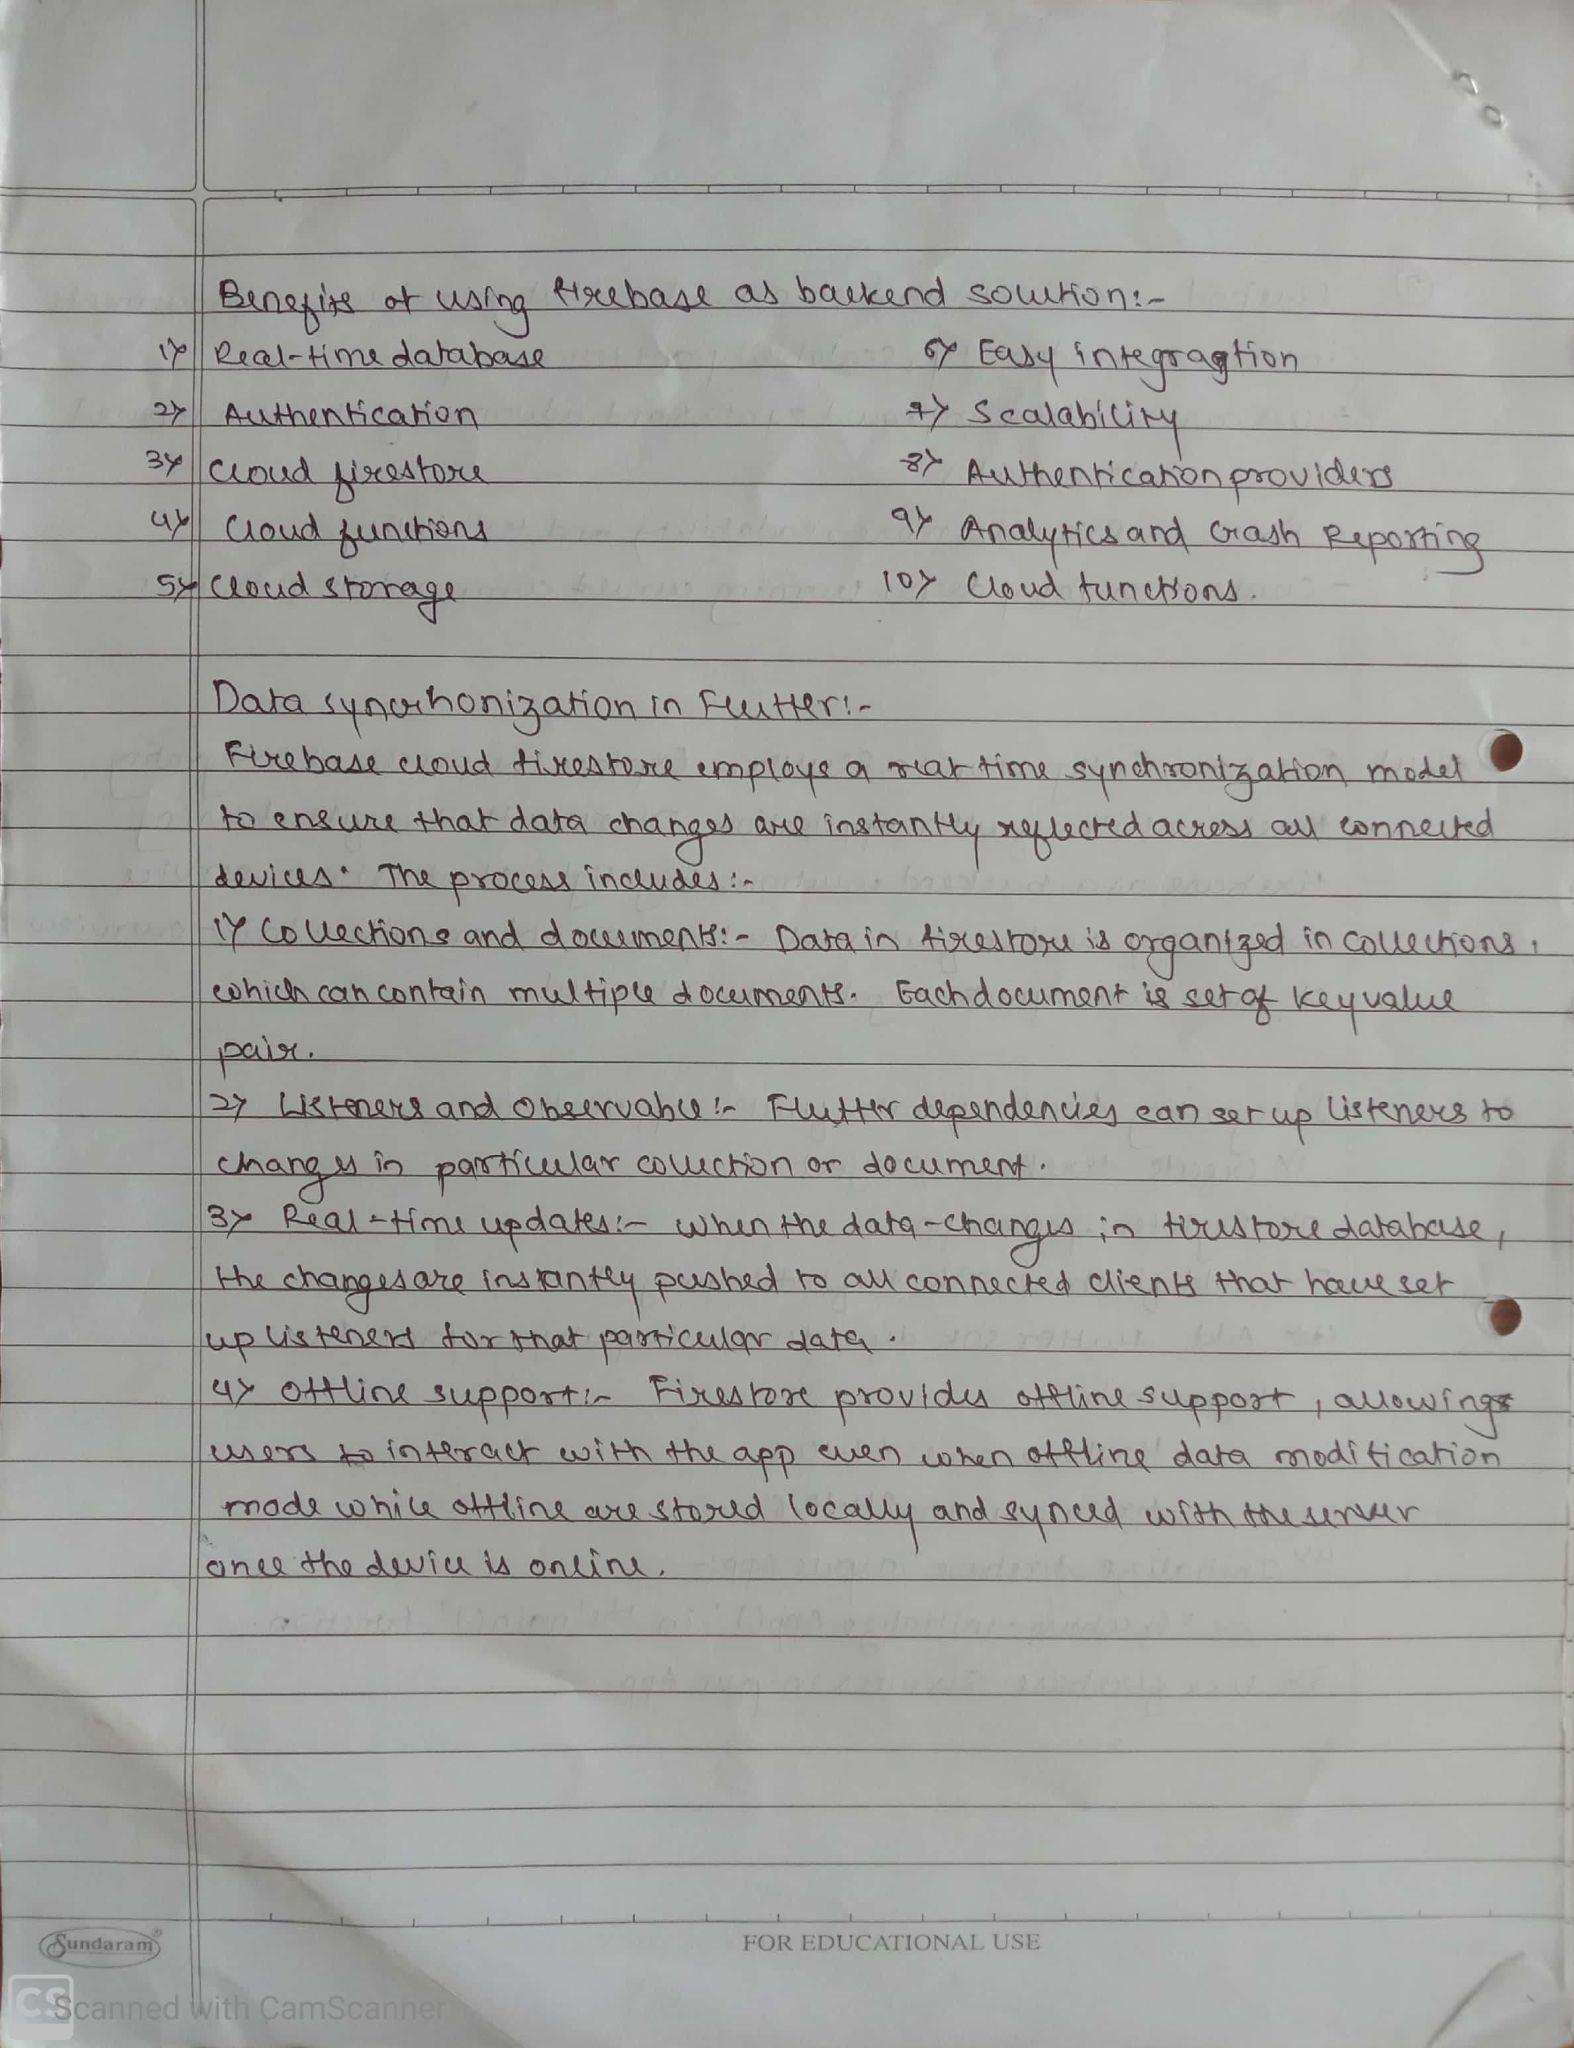 Benefits of using firebase as backend solution:-
1) Real-time database 6) Easy integragtion
2) Authentication 7) Scalability
3) Cloud firestore 8) Authentication providers
4) Cloud functions 9) Analytics and Crash Reporting
5) Cloud storage 10) Cloud functions.
Data synchonization in Flutter:-
Firebase cloud firestore employs a real time synchronization model
to ensure that data changes are instantly reflected across all connected
devices. The process includes:-
1) Collections and documents:- Data in firestore is organized in collections,
which can contain multiple documents. Each document is set of key value
pair.
2) Listeners and Observable:- Flutter dependencies can set up listeners to
changes in particular collection or document.
3) Real-time updates:- When the data-changes in firestore database,
the changes are instantly pushed to all connected clients that have set
up listeners for that particular data.
4) Offline support:- Firestore provides offline support, allowing
users to interact with the app even when offline data modification
made while offline are stored locally and synced with the server
once the device is online.
Sundaram®
FOR EDUCATIONAL USE
CS Scanned with CamScanner